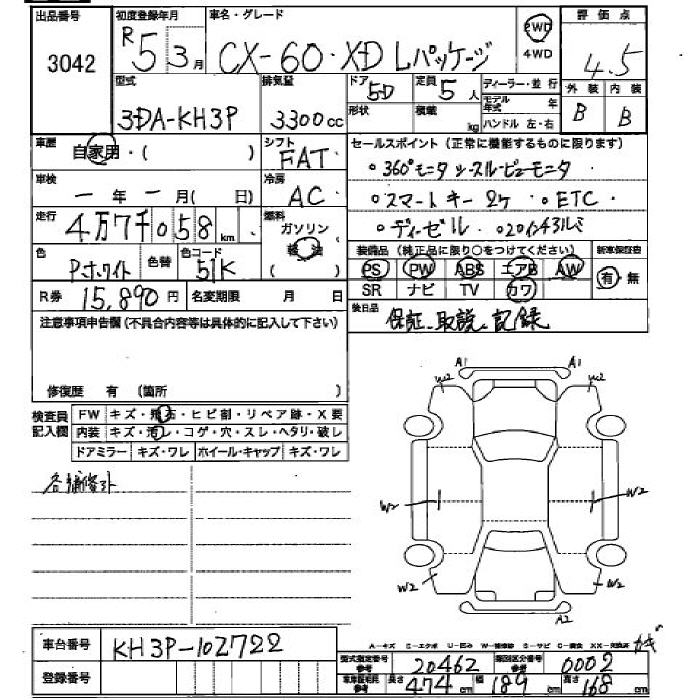 出品番号 初度登録年月 車名・グレード 2WD 評価点
3042 R5 3月 CX-60・XD Lパッケージ 4WD 4.5
型式 排気量 ドア 5D 定員 5人 ディーラー・並行 外装 内装
3DA-KH3P 3300cc 形状 積載 kg モデル年式 年 B B
ハンドル 左・右
車歴 自家用・( ) シフト FAT セールスポイント(正常に機能するものに限ります)
。360°モニタ シースルービューモニタ
車検 一年一月( 日) 冷房 AC 。スマートキー2ケ 。ETC
走行 4万7千058km 燃料 ガソリン 軽油 。ディーゼル 。20インチアルミ
色 Pホワイト 色替 色コード 51K 装備品(純正品に限り○をつけてください) 新車保証書
PS PW ABS エアB AW 有・無
R券 15,890円 名変期限 月 日 SR ナビ TV カワ
注意事項申告欄(不具合内容等は具体的に記入して下さい) 後日品 保証、取説、記録
修復歴 有 (箇所 )
検査員記入欄 FW キズ・飛石・ヒビ割・リペア跡・X要
内装 キズ・汚レ・コゲ・穴・スレ・ヘタリ・破レ
ドアミラー キズ・ワレ ホイール・キャップ キズ・ワレ
A1 A1
W2 W2
W2 W2
W2 W2
A2
車台番号 KH3P-102722
A-キズ E-エクボ U-凹み W-補修跡 S-サビ C-腐食 XX-交換済
登録番号 型式指定番号 参考 20462 類別区分番号 参考 0002
車車証記載 参考 長さ 474cm 幅 189cm 高さ 168cm